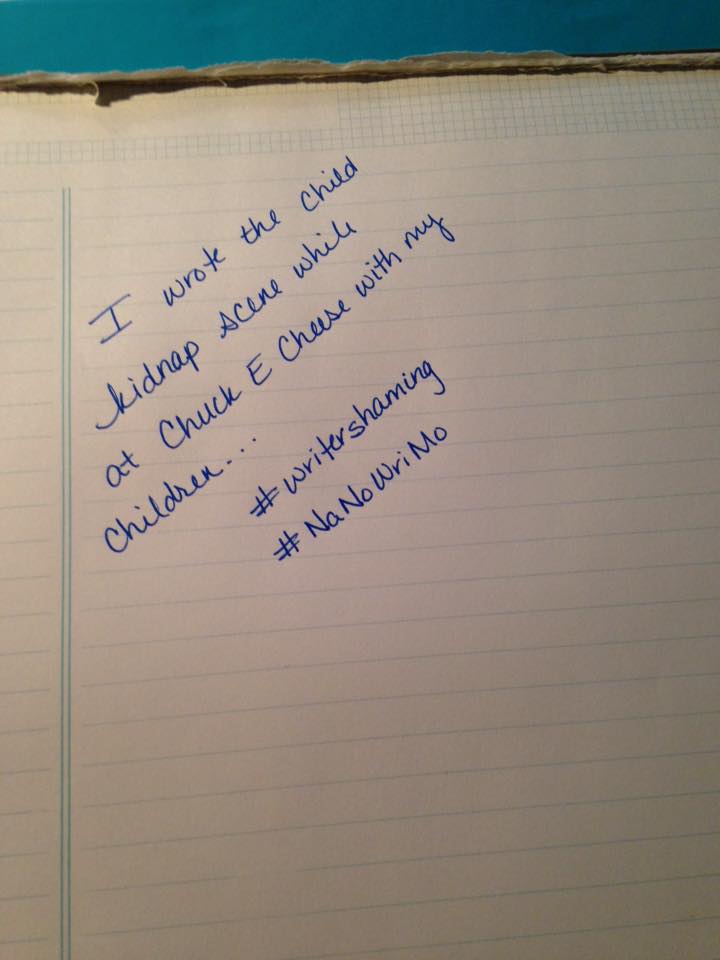 I wrote the child
kidnap scene while
at Chuck E Cheese with my
children...
#writershaming
#NaNoWriMo